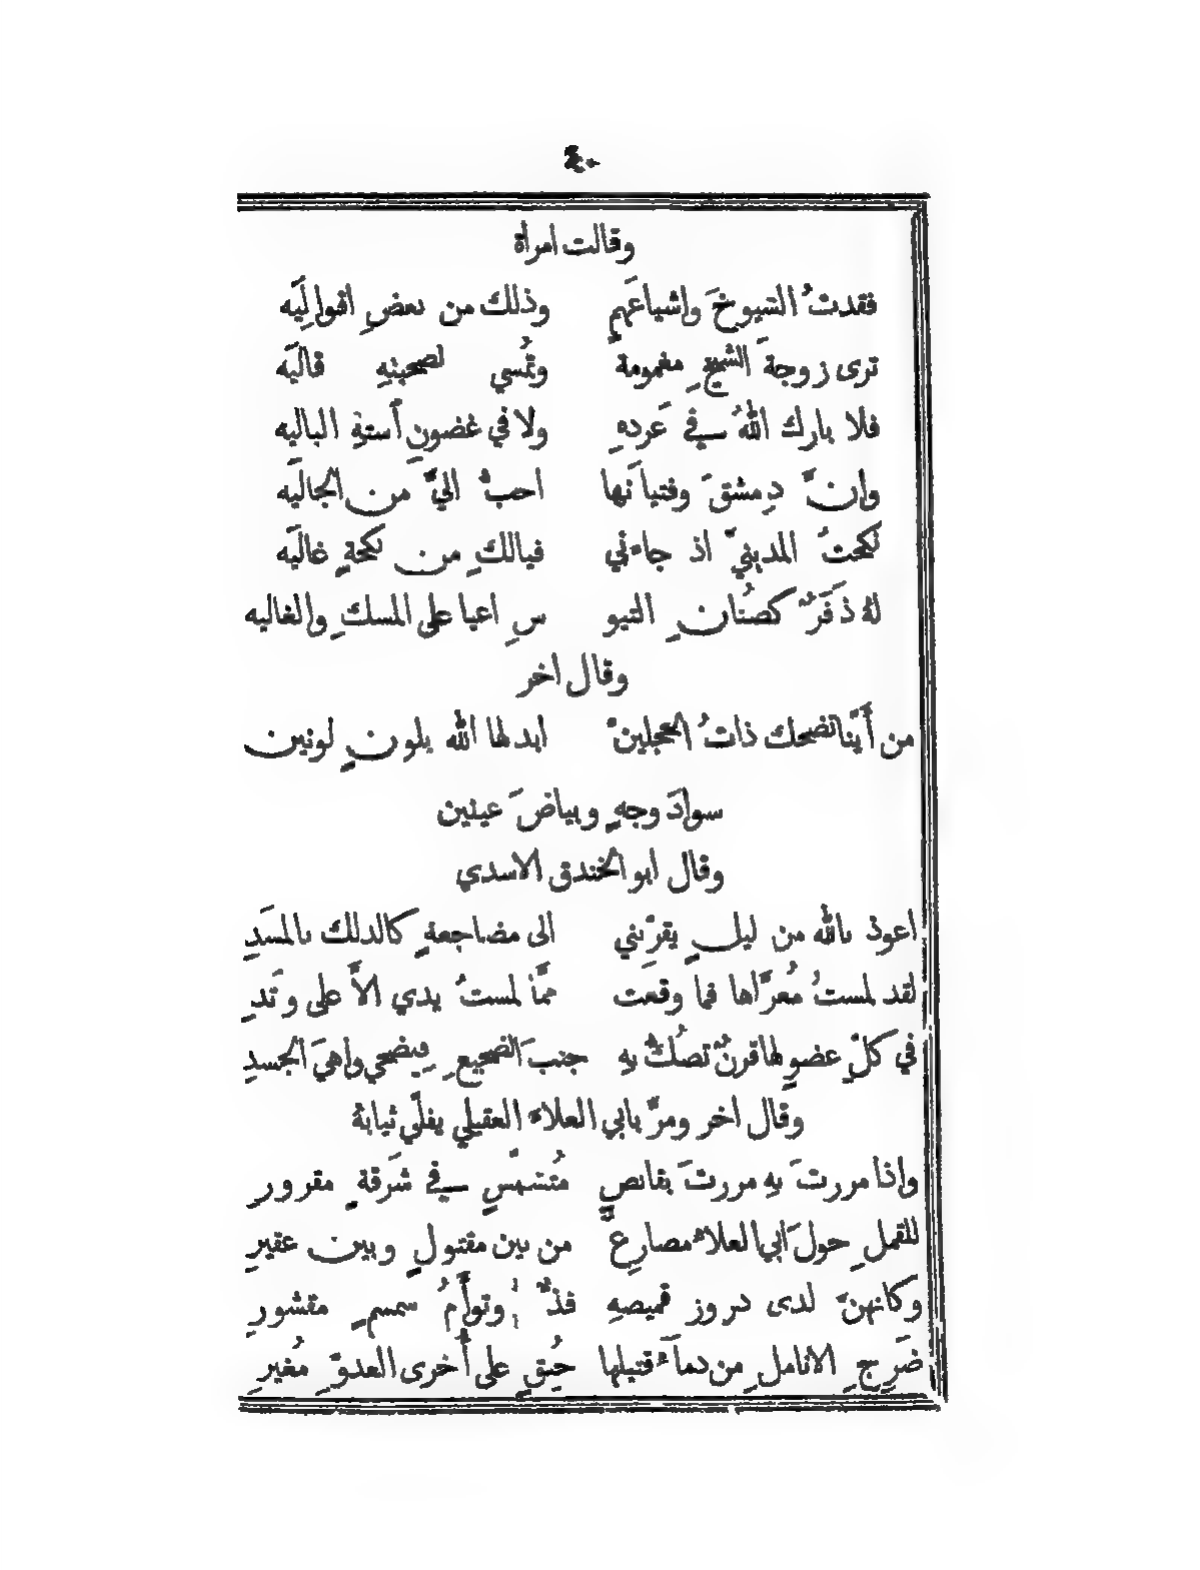 ٤٠
وقالت امرأة
فقدتُ الشيوخَ واشياعَهم وذلك من بعضِ اقوالِيَه
ترى زوجةَ الشيخِ مغمومة وتُمسي لصحبتهِ قاليَه
فلا بارك اللهُ في عَردهِ ولا في غضونِ أستهِ الباليه
وإنَّ دِمشقَ وفتيانَها احبُّ اليَّ من الجاليَه
نكحتُ المدينيَّ اذ جاءَني فيالكِ من نكحةٍ غاليَه
لهُ ذَفَرٌ كصُنانِ التيو سِ اعيا على المسكِ والغاليه
وقال اخر
من أيّنا تضحك ذاتُ الحجلينْ ابدلها الله بلونٍ لونين
سوادَ وجهٍ وبياضَ عينين
وقال ابو الخندق الاسدي
اعوذ بالله من ليلٍ يقرّبني الى مضاجعةٍ كالدلك بالمسَدِ
لقد لمستُ مُعرَّاها فما وقعت ممَّا لمستُ يدي الاَّ على وتَدِ
في كلّ عضوٍ لها قرنٌ تصُكُّ بهِ جنبَ الضجيعِ فيضحي واهيَ الجسدِ
وقال اخر ومرَّ بابي العلاء العقيلي يفلّي ثيابهُ
وإذا مررتَ بهِ مررتَ بقانصٍ مُتشمّسٍ في شَرقةٍ مقرورِ
للقملِ حولَ ابي العلاءِ مصارعٌ من بين مقتولٍ وبين عقيرِ
وكانهنَّ لدى دروز قميصهِ فذٌّ وتوأَمُ سمسمٍ مقشورِ
ضَرِجِ الاناملِ من دماءِ قتيلها حُنِقٍ على أُخرى العدوّ مُغيرِ